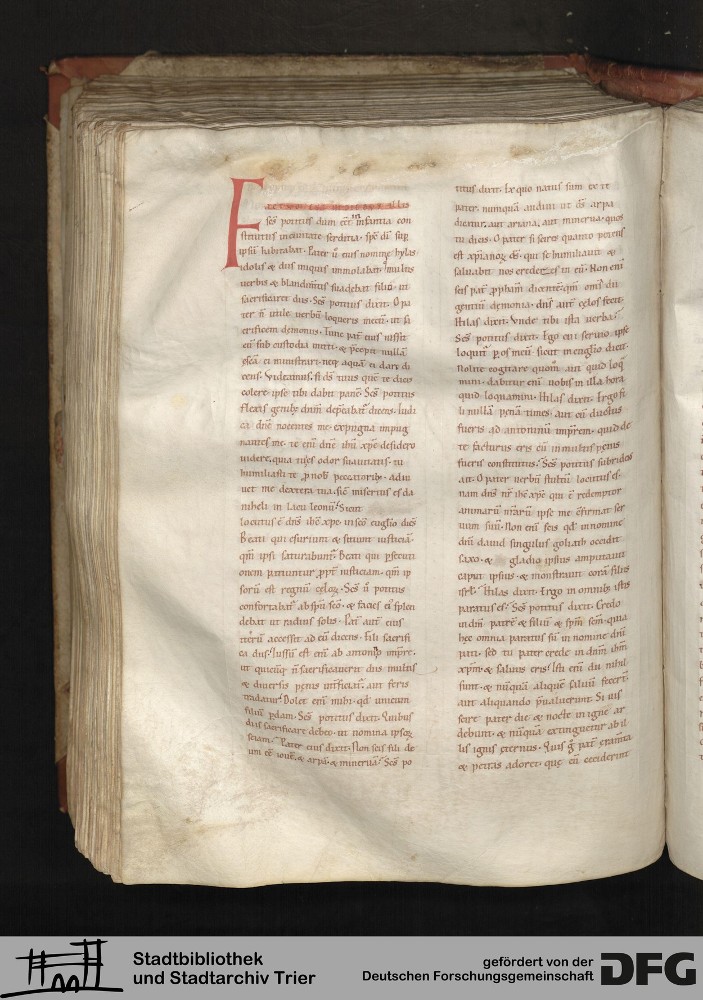 ses potitus dum eēt in infantia con
stitutus in ciuitate serditia. spē dī sup
ipsū habitabat. Pater ū eius nomine hylas
idolis & diis iniquis immolabat. multis
uerbis & blandimtis suadebat filiū. ut
sacrificaret diis. Ses potitus dixit. O pa
ter n̄ utile uerbū loqueris mecū. ut sa
crificem demonis. Tunc pat̄ eius iussit
eū sub custodia mitti. & p̄cepit nullā
escā ei ministrari. neq; aquā ei dari di
cens. Videamus. si ds̄ tuus quē te dicis
colere. ipse tibi dabit panē. Ses potitus
flexis genib; dn̄m dep̄cabat̄ dicens. Iudi
ca dn̄e nocentes me. expugna impug
nantes me. te enī dn̄e ihū xp̄e desidero
uidere. quia tu es odor suauitatis. tu
humiliasti te p nob peccatorib;. adiu
uet me dextera tua. sic misertus es da
niheli in lacu leonū. Sicut
locutus ē dn̄s ihē xp̄e in scō euglio dices
Beati qui esuriunt & sitiunt iusticiā.
qm̄ ipsi saturabunt̄. Beati qui psecuti
onem patiuntur ppt̄ iusticiam. qm̄ ip
sorū est regnū celoꝝ. Ses ū potitus
confortabat̄ ab spū scō. & facies ei splen
debat ut radius solis. Pat̄ aut̄ eius
iterū accessit ad eū dicens. Fili sacrifi
ca diis. Iussū est enī ab antonino impre.
ut quicūq; n̄ sacrificauerit diis multis
& diuersis penis aut feris
tradatur. Dolet enī mihi. qd unicum
filiū pdam. Ses potitus dixit. Quibus
diis sacrificare debeo. ut nomina ipsoꝝ
sciam. Pater eius dixit. Non scis fili de
um eē iouē. & arpā. & mineruā. Ses po
titus dixit. Ex quo natus sum ex te
pater. numquā audiui ut ds̄ arpa
dicatur. aut ariana. aut minerua. quos
tu dicis. O pater si scires quanto potens
est xpianoꝝ ds̄. qui se humiliauit &
saluabit nos credentes in eū. Non enī
scis pat̄ ppham dicentē. qm̄ oms dii
gentiū demonia. dn̄s aut̄ celos fecit.
Hilas dixit. Vnde tibi ista uerba.
Ses potitus dixit. Ego cui seruio ipse
loquit̄ p os meū. sicut in euglio dicit.
Nolite cogitare quom̄. aut quid loq
mini. dabitur enī uobis in illa hora
quid loquamini. Hilas dixit. Ergo fi
li nullā penā times. aut cū ductus
fueris ad antoninū imprem. quid de
te facturus eris cū in multis penis
fueris constitutus. Ses potitus subridēs
ait. O pater uerbū stultū locutus es.
nam dn̄s nr̄ ihē xp̄e qui ē redemptor
animarū nr̄arū ipse me cfirmat ser
uum suū. Non enī scis qd in nomine
dn̄i dauid singulus goliath occidit
saxo. & gladio ipsius amputauit
caput ipsius. & monstrauit corā filiis
isrl. Hilas dixit. Ergo in omnib; istis
paratus es. Ses potitus dixit. Credo
in dm̄ patrē & filiū & spm̄ scm̄. quia
hec omnia paratus sū in nomine dn̄i
pati. sed tu pater crede in dn̄m ihm̄
xpm̄. & saluus eris. Isti enī dii nihil
sunt. & nūquā aliquē saluū fecert̄.
aut aliquando pualuerint. Si uis
scire pater die & nocte in igne ar
debunt. & nūquā extinguetur ab il
lis ignis eternus. Quis g pat̄ eramta
& petras adoret. que cū ceciderint
Stadtbibliothek
und Stadtarchiv Trier
gefördert von der
Deutschen Forschungsgemeinschaft
DFG